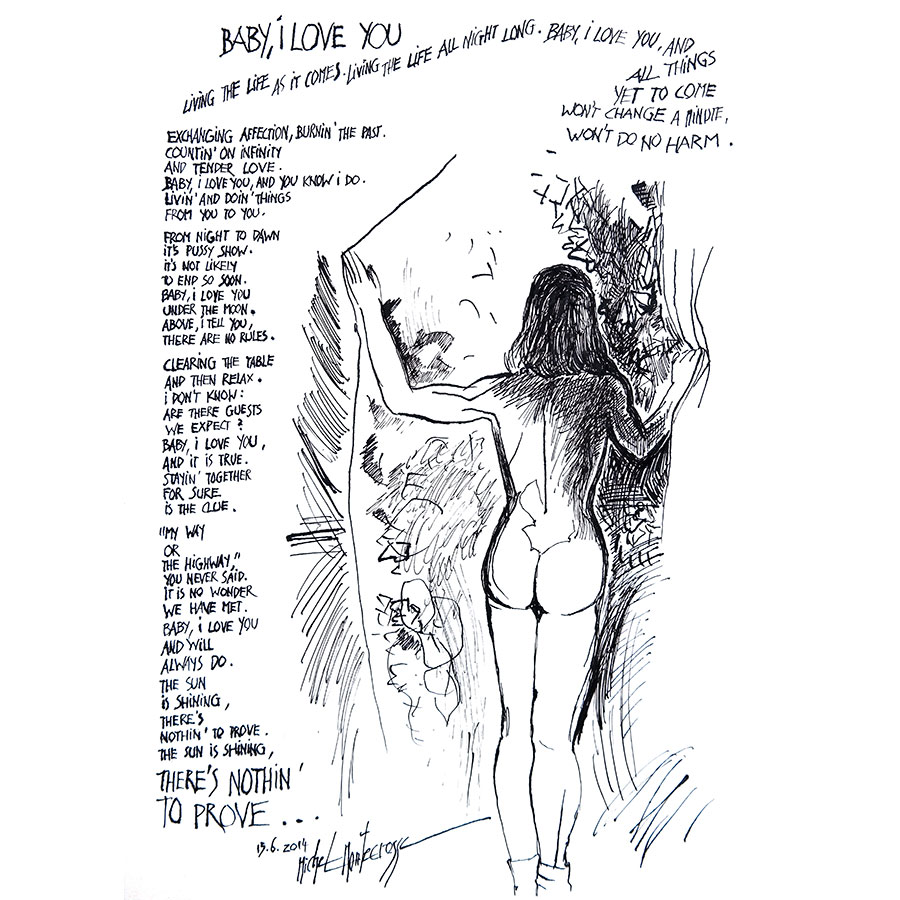 BABY, i LOVE YOU
LiViNG THE LiFE AS iT COMES. LiViNG THE LiFE ALL NiGHT LONG. BABY, i LOVE YOU, AND
ALL THiNGS
YET TO COME
WON'T CHANGE A MiNUTE,
WON'T DO NO HARM.
EXCHANGiNG AFFECTiON, BURNiN' THE PAST.
COUNTiN' ON iNFiNiTY
AND TENDER LOVE.
BABY, i LOVE YOU, AND YOU KNOW i DO.
LiViN' AND DOiN' THiNGS
FROM YOU TO YOU.
FROM NiGHT TO DAWN
iT'S PUSSY SHOW.
iT'S NOT LiKELY
TO END SO SOON.
BABY, i LOVE YOU
UNDER THE MOON.
ABOVE, i TELL YOU,
THERE ARE NO RULES.
CLEARiNG THE TABLE
AND THEN RELAX.
i DON'T KNOW:
ARE THERE GUESTS
WE EXPECT?
BABY, i LOVE YOU,
AND iT iS TRUE.
STAYiN' TOGETHER
FOR SURE
iS THE CLUE.
"MY WAY
OR
THE HiGHWAY,"
YOU NEVER SAiD.
iT iS NO WONDER
WE HAVE MET.
BABY, i LOVE YOU
AND WiLL
ALWAYS DO.
THE SUN
iS SHiNiNG,
THERE'S
NOTHiN' TO PROVE.
THE SUN iS SHiNiNG,
THERE'S NOTHiN'
TO PROVE...
15.6.2014
Michel Montecrossa